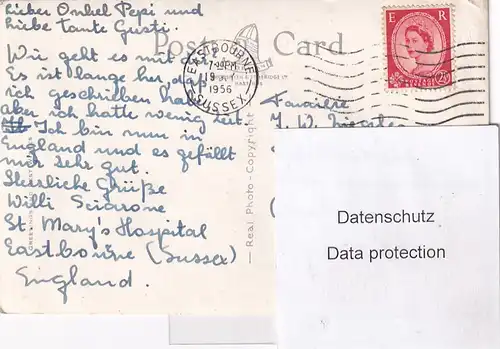 Lieber Onkel Pepi und
liebe Tante Gusti.
Post Card
Wie geht es mit
Es ist lange her, daß
ich geschrieben hab
aber ich hatte wenig Zeit.
Ich bin nun in
England und es gefällt
mir sehr gut.
Herzliche Grüße
Willi Sciarone
St. Mary's Hospital
Eastbourne (Sussex)
England.
EASTBOURNE
7-PM
19
1956
SUSSEX
E R
Real Photo - Copyright
Familie
J. W.
Datenschutz
Data protection